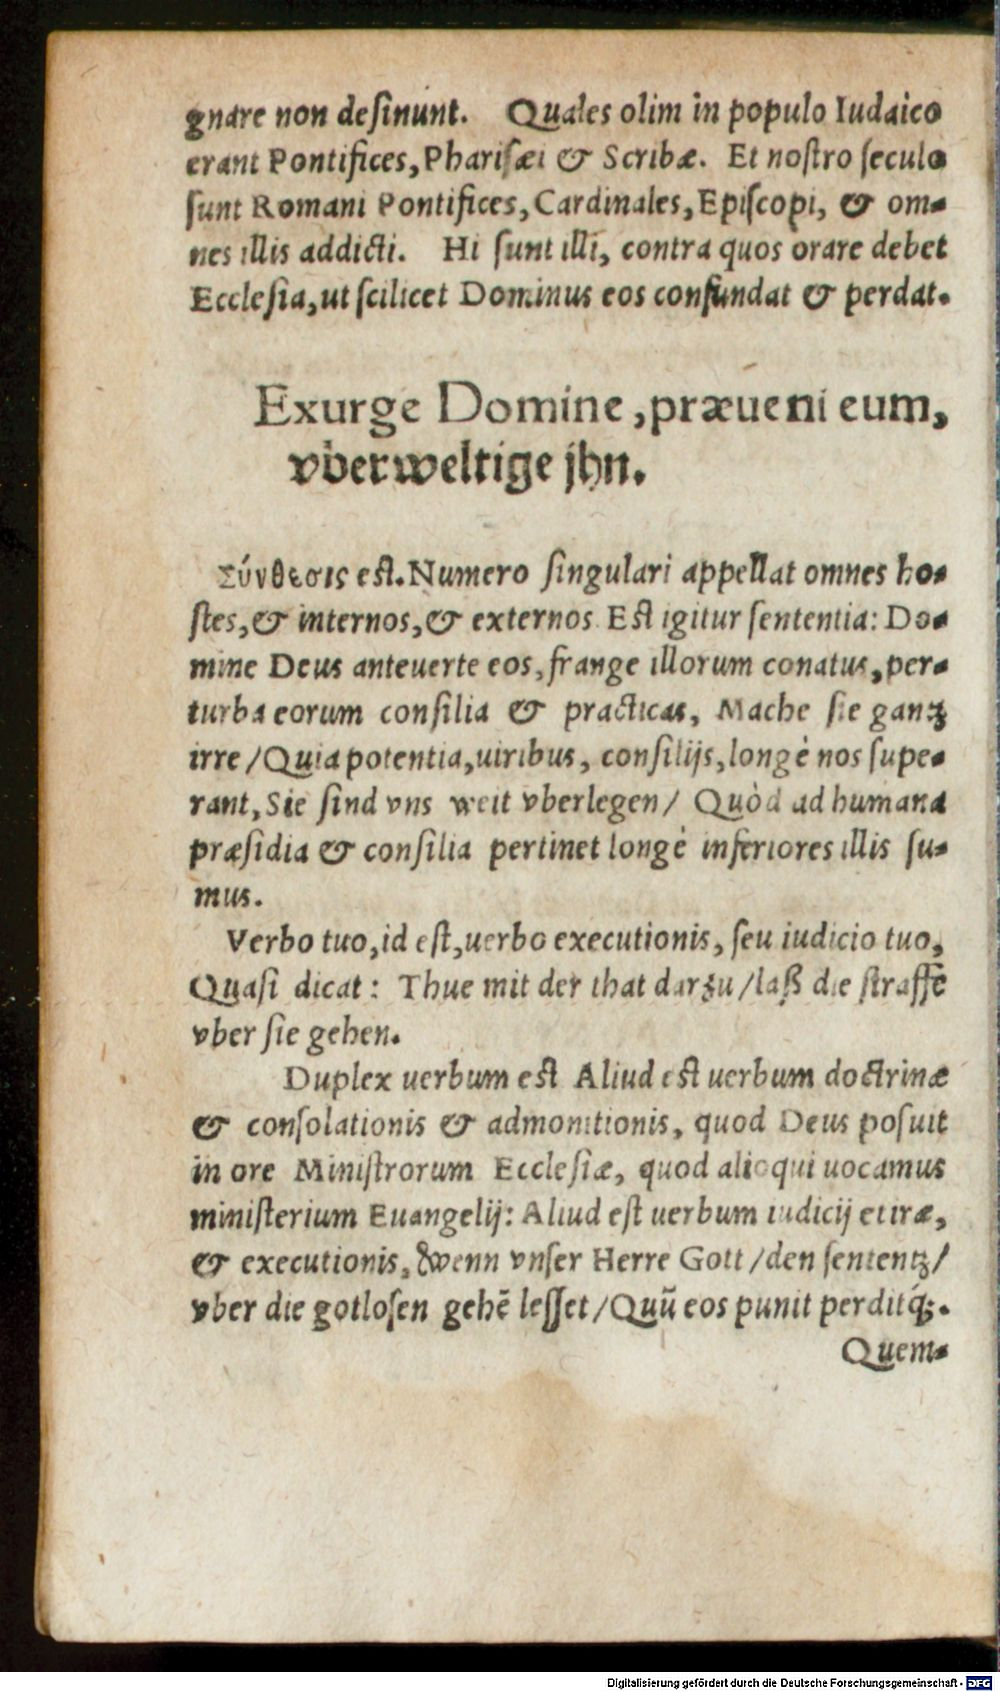 gnare non deſinunt. Quales olim in populo Iudaico
erant Pontifices, Phariſæi & Scribæ. Et noſtro ſeculo
ſunt Romani Pontifices, Cardinales, Epiſcopi, & om-
nes illis addicti. Hi ſunt illi, contra quos orare debet
Eccleſia, ut ſcilicet Dominus eos confundat & perdat.
Exurge Domine, præueni eum,
vberweltige jhn.
Σύνθεσις eſt. Numero ſingulari appellat omnes ho-
ſtes, & internos, & externos. Eſt igitur ſententia: Do-
mine Deus anteuerte eos, frange illorum conatus, per-
turba eorum conſilia & practicas, Mache ſie gantz
irre / Quia potentia, uiribus, conſilijs, longè nos ſupe-
rant, Sie ſind vns weit vberlegen / Quòd ad humana
præſidia & conſilia pertinet longè inferiores illis ſu-
mus.
Verbo tuo, id eſt, uerbo executionis, ſeu iudicio tuo,
Quaſi dicat: Thue mit der that darzu / laß die ſtraffē
vber ſie gehen.
Duplex uerbum eſt Aliud eſt uerbum doctrinæ
& conſolationis & admonitionis, quod Deus poſuit
in ore Miniſtrorum Eccleſiæ, quod alioqui uocamus
miniſterium Euangelij: Aliud eſt uerbum iudicij et iræ,
& executionis, wenn vnſer Herre Gott / den ſententz /
vber die gotloſen gehē leſſet / Quū eos punit perditq́;.
Quem-
Digitalisierung gefördert durch die Deutsche Forschungsgemeinschaft - DFG